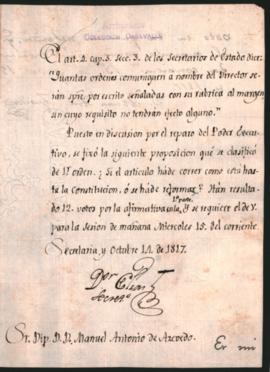 COLECCION CARVALLO
El art. 2. cap. 3. Secc. 3. de los Secretarios de Estado dice:
"Quantas ordenes comuniquen a nombre del Director se-
rán spre. por escrito señaladas con su rubrica al margen
sin cuyo requisito no tendrán efecto alguno."
Puesto en discusion por el reparo del Poder Execu-
tivo, se fixó la siguiente proposicion que se clasificó
de 1º orden: ¿Si el articulo há de correr como está hasta
la Constitucion, ó se há de reformar? Han resulta-
do 12. votos por la afirmativa 1ª parte, y se requiere el de V.
para la Sesion de mañana Miercoles 15. del corriente.
Secretaria, y Octubre 14. de 1817.
Secreto.
Sr. Dip. D. D. Manuel Antonio de Azevedo.